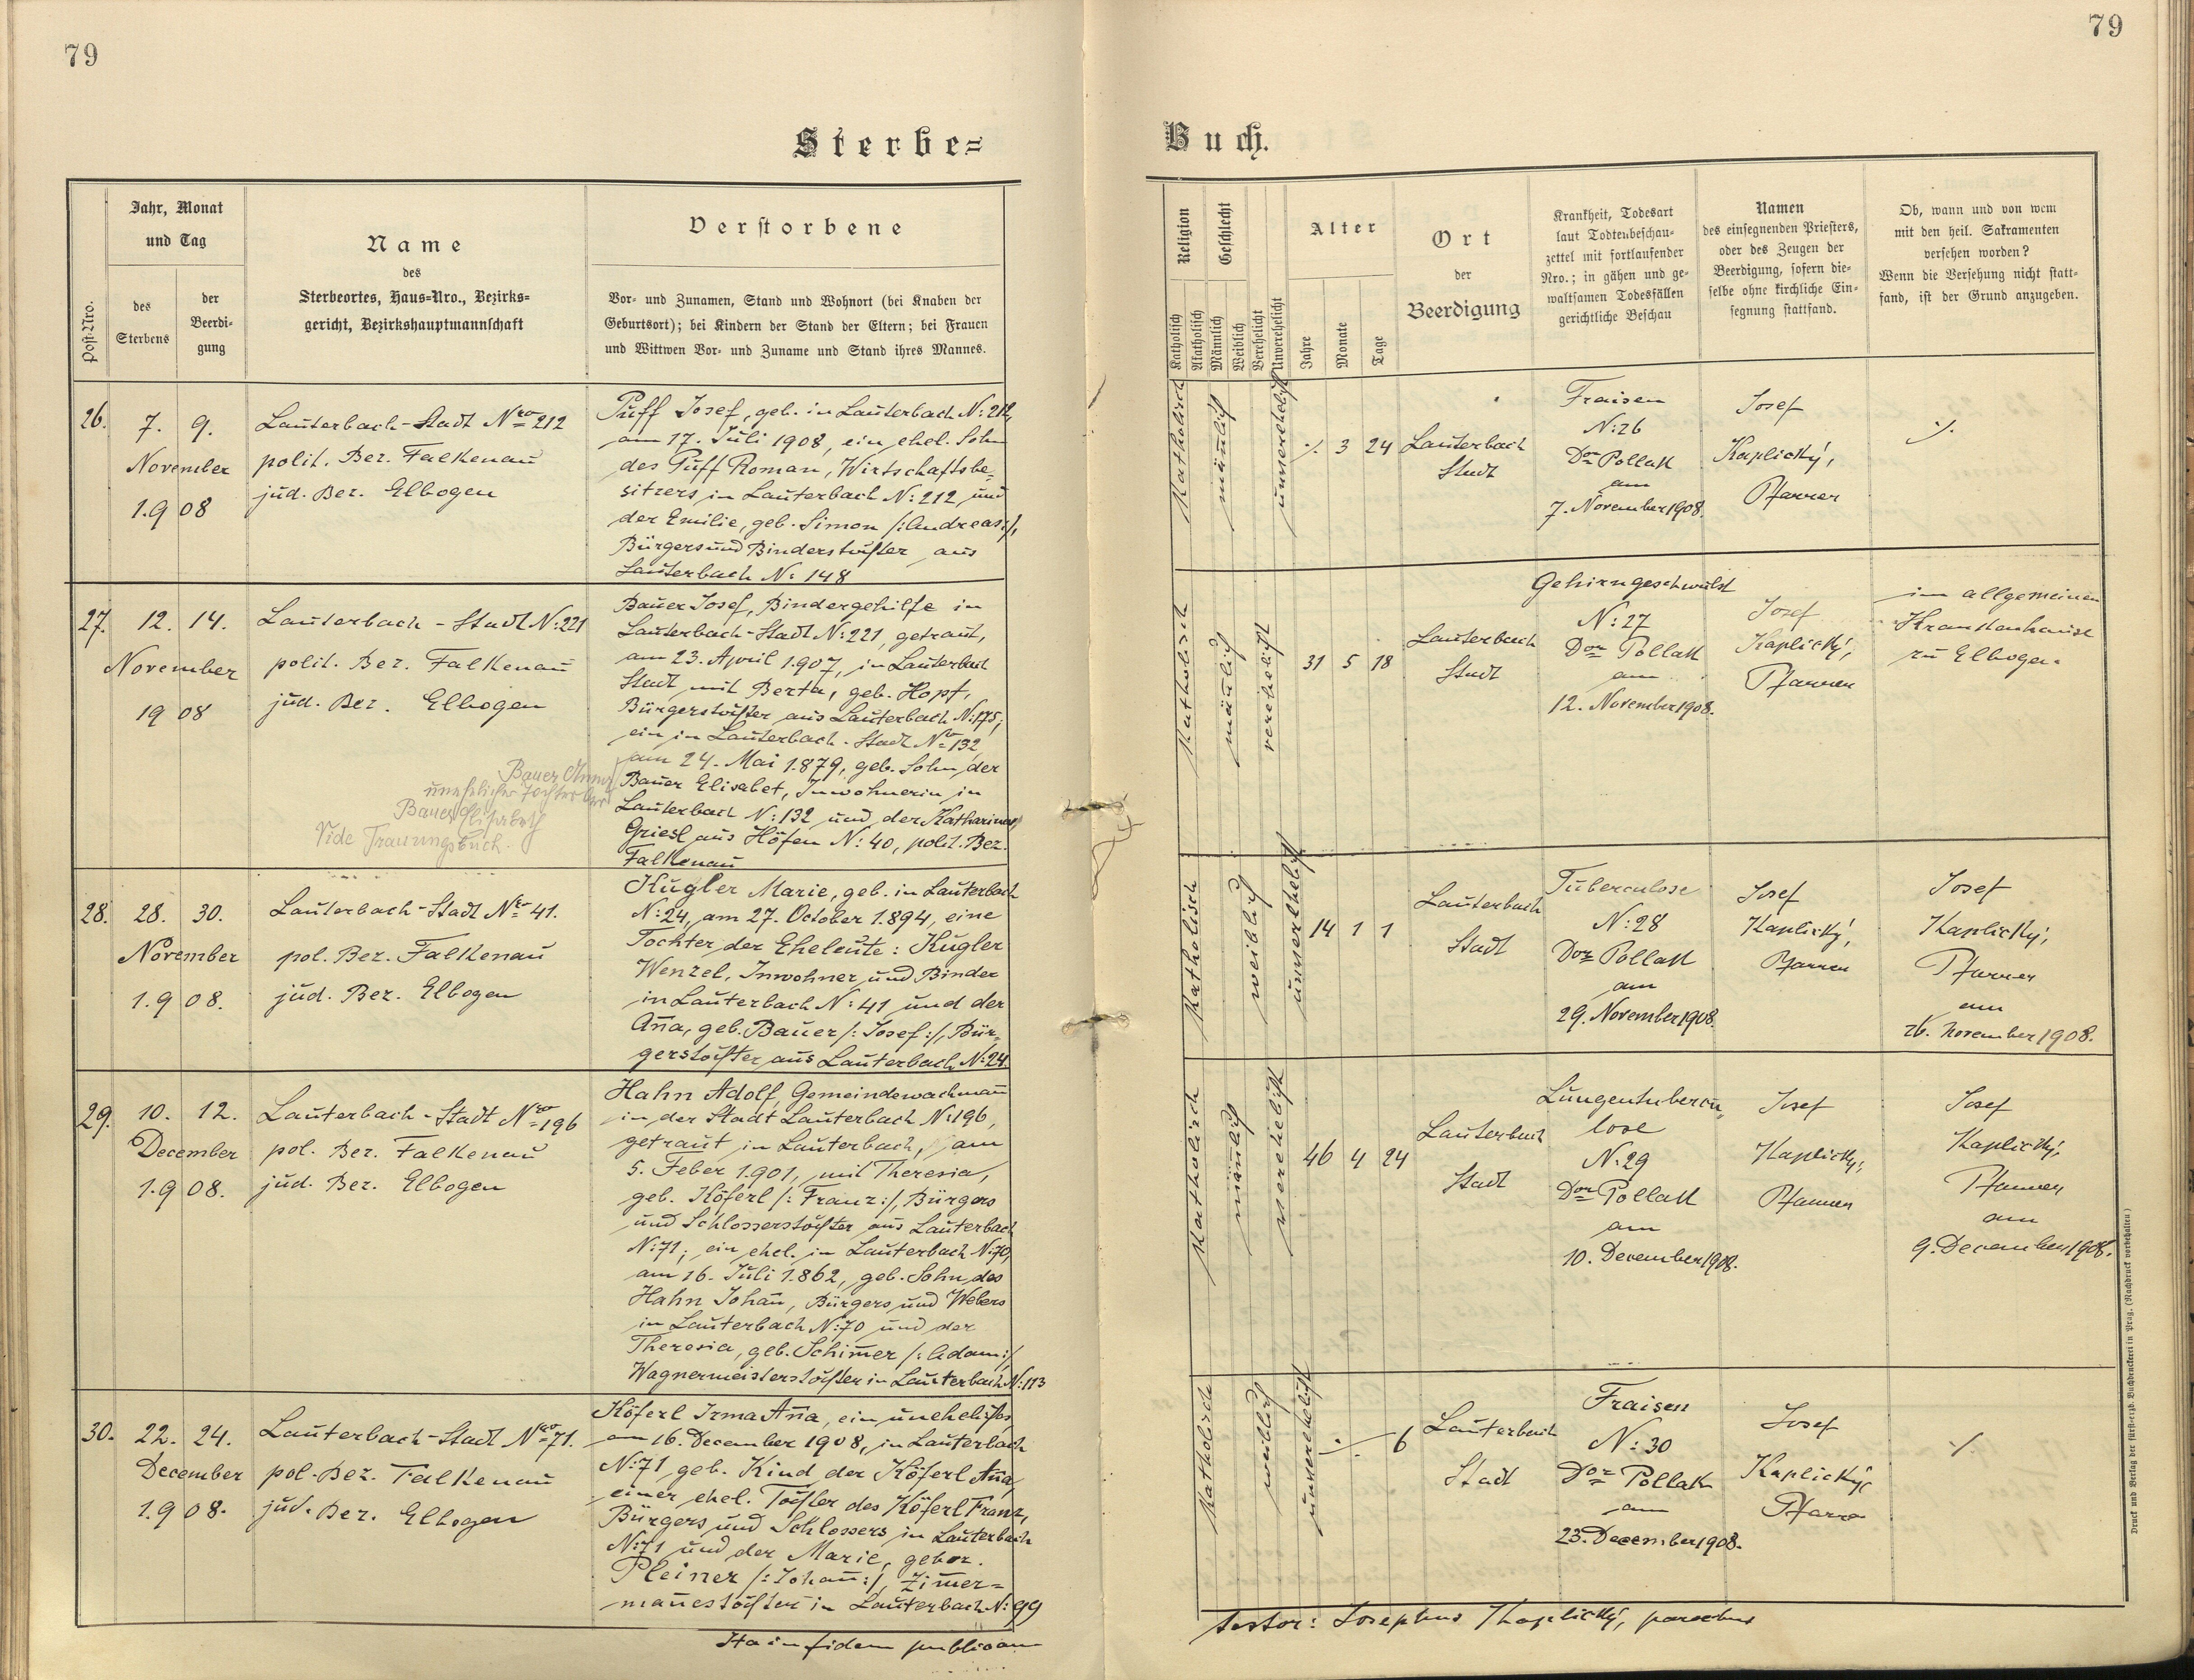 79
79
Sterbe=
Buch.
Post-Nro.
Jahr, Monat
und Tag
des
Sterbens
der
Beerdi-
gung
Name
des
Sterbeortes, Haus=Nro., Bezirks=
gericht, Bezirkshauptmannschaft
Verstorbene
Vor- und Zunamen, Stand und Wohnort (bei Knaben der
Geburtsort); bei Kindern der Stand der Eltern; bei Frauen
und Wittwen Vor- und Zuname und Stand ihres Mannes.
Religion
Katholisch
Akatholisch
Geschlecht
Männlich
Weiblich
Verehelicht
Unverehelicht
Alter
Jahre
Monate
Tage
Ort
der
Beerdigung
Krankheit, Todesart
laut Todtenbeschau-
zettel mit fortlaufender
Nro.; in gähen und ge-
waltsamen Todesfällen
gerichtliche Beschau
Namen
des einsegnenden Priesters,
oder des Zeugen der
Beerdigung, sofern die-
selbe ohne kirchliche Ein-
segnung stattfand.
Ob, wann und von wem
mit den heil. Sakramenten
versehen worden?
Wenn die Versehung nicht statt-
fand, ist der Grund anzugeben.
26.
7. 9.
November
1908
Lauterbach-Stadt Nro 212
polit. Bez. Falkenau
jud. Bez. Elbogen
Puff Josef, geb. in Lauterbach N: 212,
am 17. Juli 1908, ein ehel. Sohn
des Puff Roman, Wirtschaftsbe-
sitzers in Lauterbach N: 212 und
der Emilie, geb. Simon /:Andreas:/,
Bürgers und Binderstochter aus
Lauterbach N: 148
Katholisch
männlich
unverehelicht
./. 3 24
Lauterbach
Stadt
Fraisen
N: 26
Dor Pollak
am
7. November 1908.
Josef
Kaplický,
Pfarrer
./.
27.
12. 14.
November
1908
Lauterbach-Stadt N: 221
polit. Bez. Falkenau
jud. Bez. Elbogen
Bauer Anna
uneheliche Tochter der
Bauer Elisabeth
Vide Trauungsbuch.
Bauer Josef, Bindergehilfe in
Lauterbach-Stadt N: 221, getraut,
am 23. April 1907, in Lauterbach
Stadt mit Berta, geb. Hopf,
Bürgerstochter aus Lauterbach N: 175;
ein in Lauterbach-Stadt Nro 132
am 24. Mai 1879, geb. Sohn der
Bauer Elisabet, Inwohnerin in
Lauterbach N: 132 und der Katharina
Griesl aus Höfen N: 40, polit. Bez.
Falkenau
Katholisch
männlich
verehelicht
31 5 18
Lauterbach
Stadt
Gehirngeschwulst
N: 27
Dor Pollak
am
12. November 1908.
Josef
Kaplický,
Pfarrer
im allgemeinen
Krankenhause
zu Elbogen.
28.
28. 30.
November
1908.
Lauterbach-Stadt Nro 41.
pol. Bez. Falkenau
jud. Bez. Elbogen
Kugler Marie, geb. in Lauterbach
N: 24, am 27. October 1894, eine
Tochter der Eheleute: Kugler
Wenzel, Inwohner und Binder
in Lauterbach N: 41 und der
An̄a, geb. Bauer /: Josef :/, Bür-
gerstochter aus Lauterbach N: 24.
Katholisch
weiblich
unverehelicht
14 1 1
Lauterbach
Stadt
Tuberculose
N: 28
Dor Pollak
am
29. November 1908.
Josef
Kaplický,
Pfarrer
Josef
Kaplický,
Pfarrer
am
26. November 1908.
29.
10. 12.
December
1908.
Lauterbach-Stadt Nro 196
pol. Bez. Falkenau
jud. Bez. Elbogen
Hahn Adolf, Gemeindewachman̄
in der Stadt Lauterbach N: 196,
getraut in Lauterbach, am
5. Feber 1901, mit Theresia,
geb. Köferl /: Franz :/, Bürgers
und Schlosserstochter aus Lauterbach
N: 71; ein ehel. in Lauterbach N: 70,
am 16. Juli 1862, geb. Sohn des
Hahn Johan̄, Bürgers und Webers
in Lauterbach N: 70 und der
Theresia, geb. Schim̄er /: Adam :/
Wagnermeisterstochter in Lauterbach N: 113
Katholisch
männlich
verehelicht
46 4 24
Lauterbach
Stadt
Lungentubercu-
lose
N: 29
Dor Pollak
am
10. December 1908.
Josef
Kaplický,
Pfarrer
Josef
Kaplický,
Pfarrer
am
9. December 1908.
30.
22. 24.
December
1908.
Lauterbach-Stadt Nro 71.
pol. Bez. Falkenau
jud. Bez. Elbogen
Köferl Irma An̄a, ein uneheliches
am 16. December 1908, in Lauterbach
N: 71 geb. Kind der Köferl An̄a,
einer ehel. Tochter des Köferl Franz,
Bürgers und Schlossers in Lauterbach
N: 71 und der Marie, gebor.
Pleiner /: Johan̄ :/, Zim̄er=
man̄stochter in Lauterbach N: 99
Katholisch
weiblich
unverehelicht
./. 6
Lauterbach
Stadt
Fraisen
N: 30
Dor Pollak
am
23. December 1908.
Josef
Kaplický,
Pfarrer
./.
Ita in fidem publicam
testor: Josephus Kaplický, parochus
Druck und Verlag der fürst-erzb. Buchdruckerei in Prag. (Nachdruck vorbehalten)